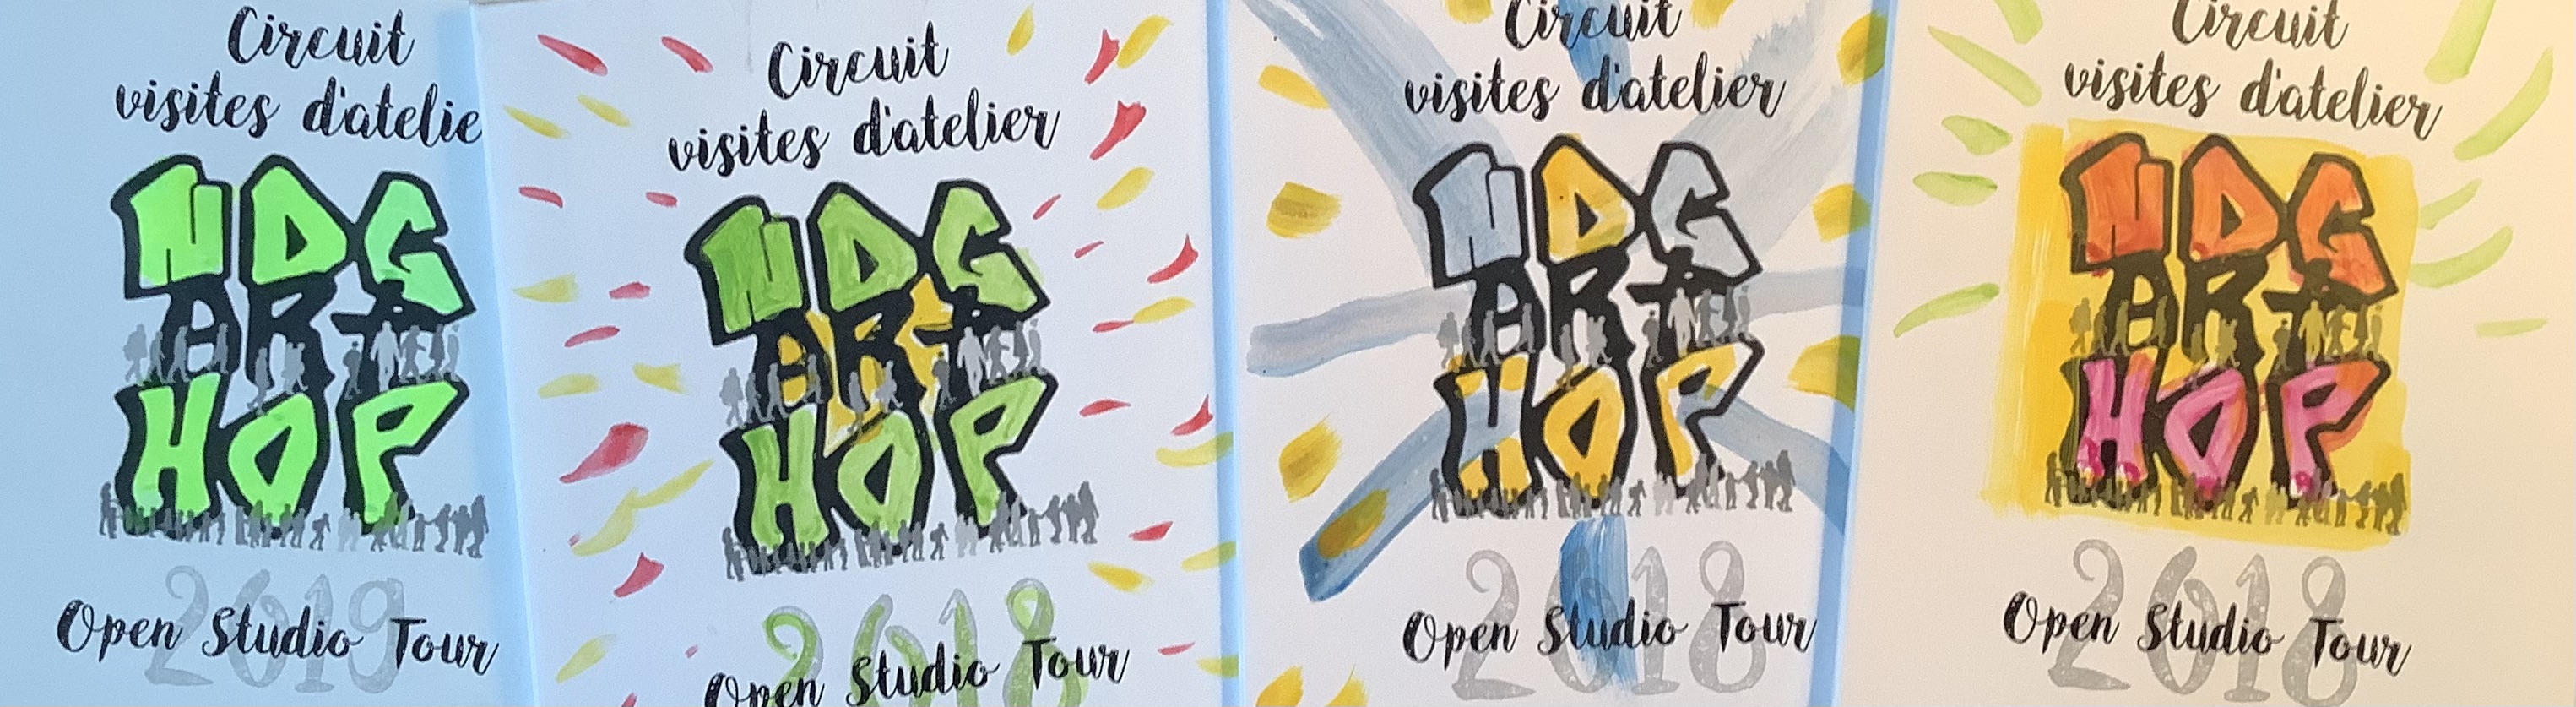 Circuit
visites d'atelie
NDG
ART
HOP
2019
Open Studio Tour
Circuit
visites d'atelier
NDG
ART
HOP
2018
Open Studio Tour
Circuit
visites d'atelier
NDG
ART
HOP
2018
Open Studio Tour
Circuit
visites d'atelier
NDG
ART
HOP
2018
Open Studio Tour